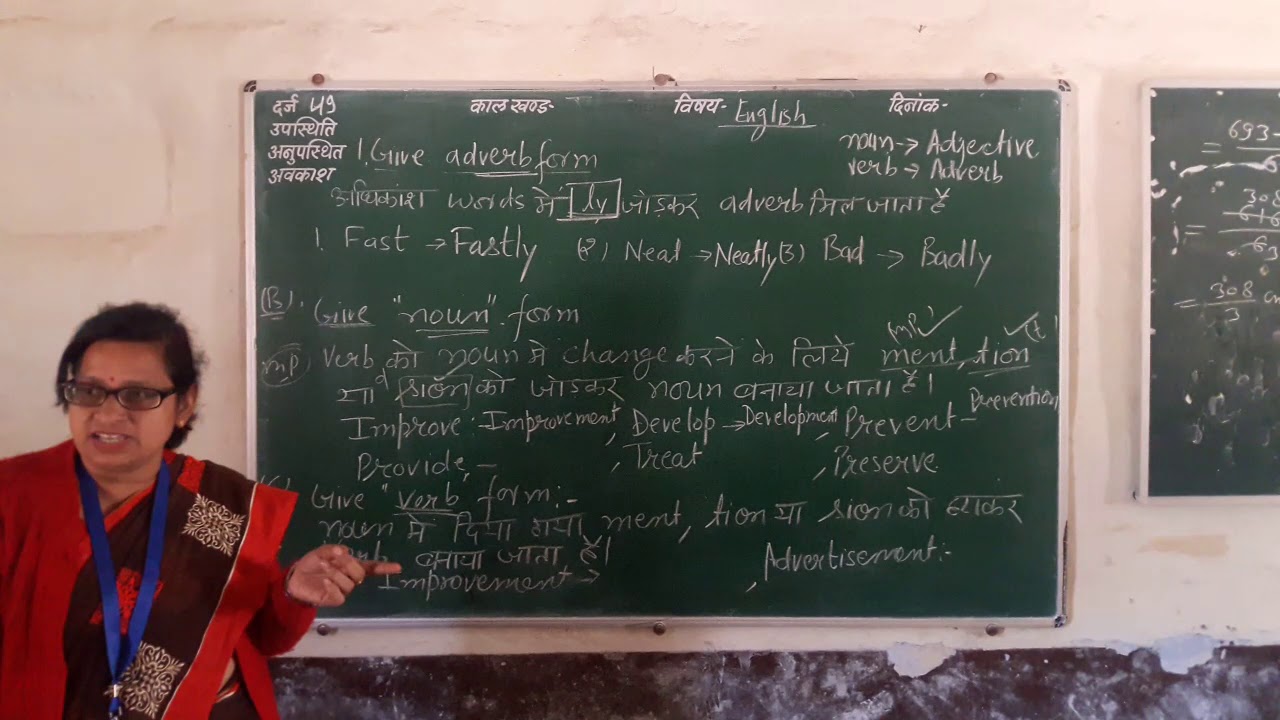 दर्ज 49 काल खण्ड- विषय- English दिनांक-
उपस्थिति
अनुपस्थित
अवकाश
noun → Adjective
verb → Adverb
1. Give adverb form
अधिकांश words में ly जोड़कर adverb मिल जाता है
1. Fast → Fastly (२) Neat → Neatly (3) Bad → Badly
(B). Give "noun" form
(mp)
(mp) Verb को noun में change करने के लिये ment, tion
या sion को जोड़कर noun बनाया जाता है।
Improve :- Improvement, Develop → Development, Prevent - Prevention
Provide, - , Treat , Preserve
Give "verb" form :-
noun में दिया गया ment, tion या sion को हटाकर
verb बनाया जाता है।
Improvement → , Advertisement :-
= 693
308
= 616
63
= 308
3